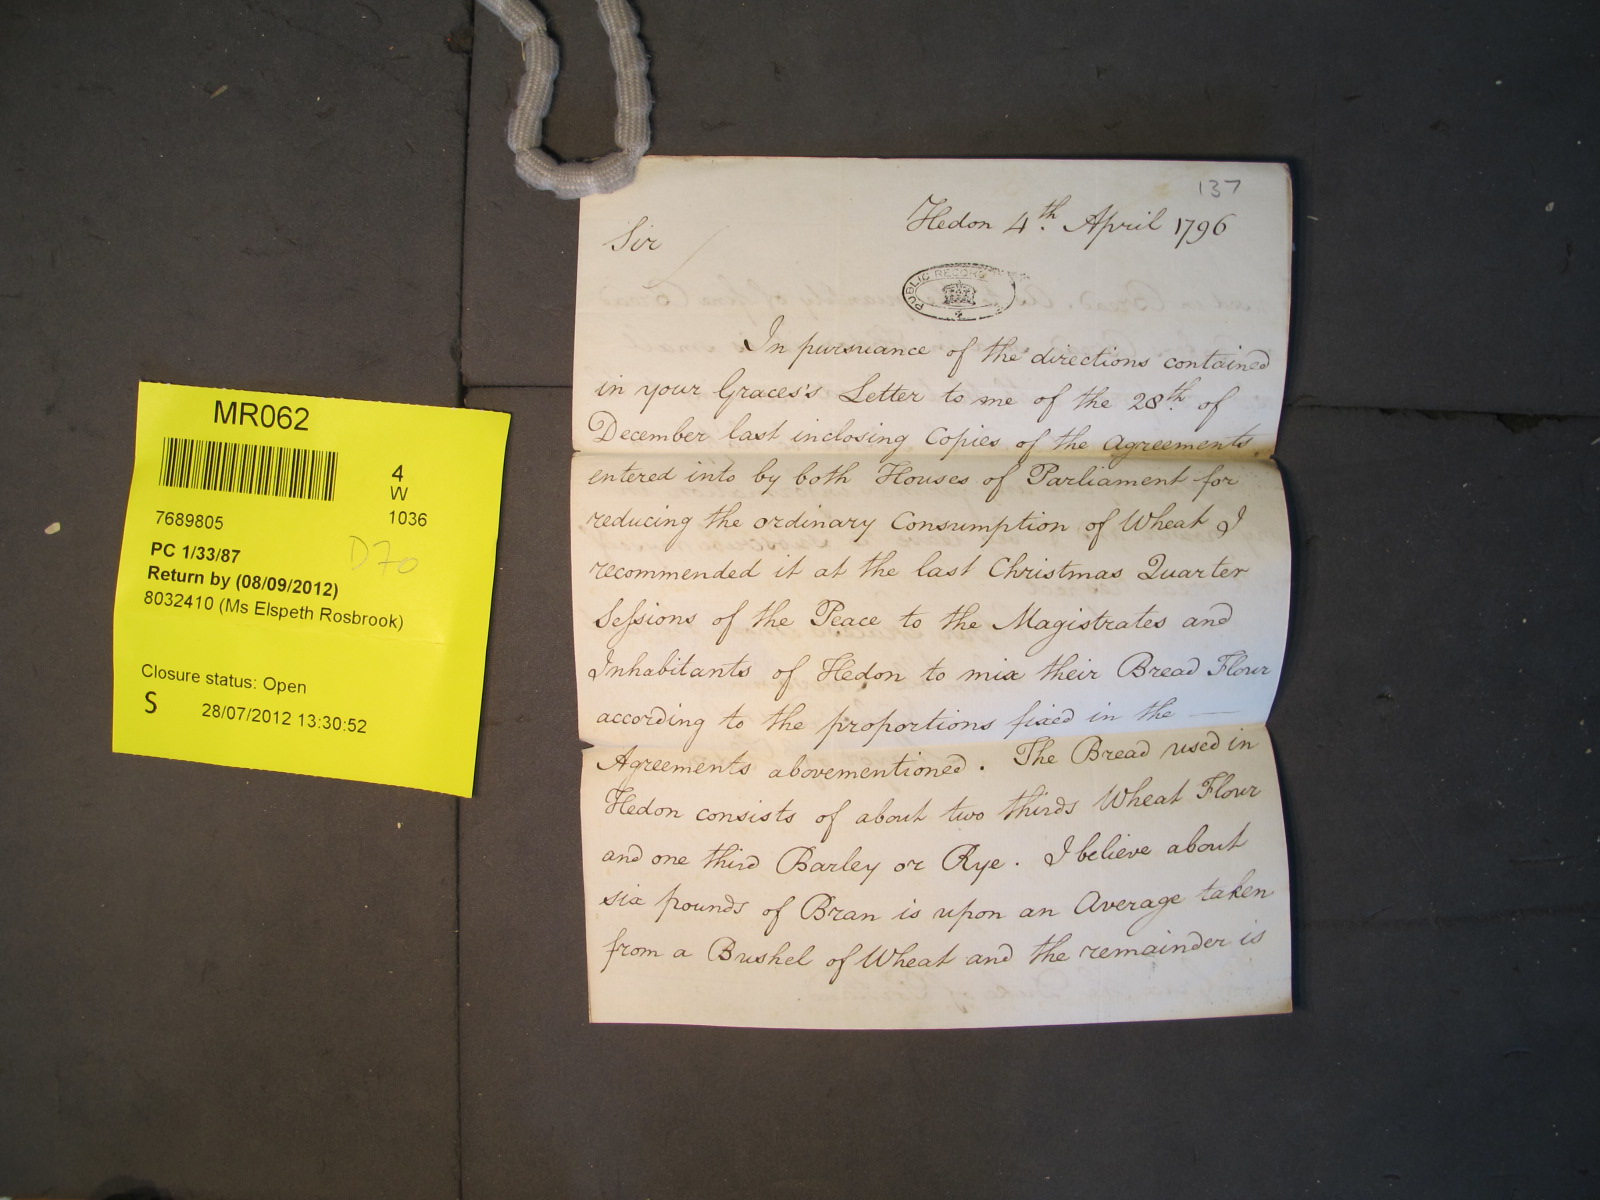 137
Hedon 4th. April 1796
Sir
PUBLIC RECORD
In pursuance of the directions contained
in your Graces's Letter to me of the 28th. of
December last inclosing Copies of the Agreements
entered into by both Houses of Parliament for
reducing the ordinary Consumption of Wheat I
recommended it at the last Christmas Quarter
Sessions of the Peace to the Magistrates and
Inhabitants of Hedon to mix their Bread Flour
according to the proportions fixed in the —
Agreements abovementioned. The Bread used in
Hedon consists of about two thirds Wheat Flour
and one third Barley or Rye. I believe about
six pounds of Bran is upon an Average taken
from a Bushel of Wheat and the remainder is
MR062
4
W
1036
7689805
D70
PC 1/33/87
Return by (08/09/2012)
8032410 (Ms Elspeth Rosbrook)
Closure status: Open
S
28/07/2012 13:30:52